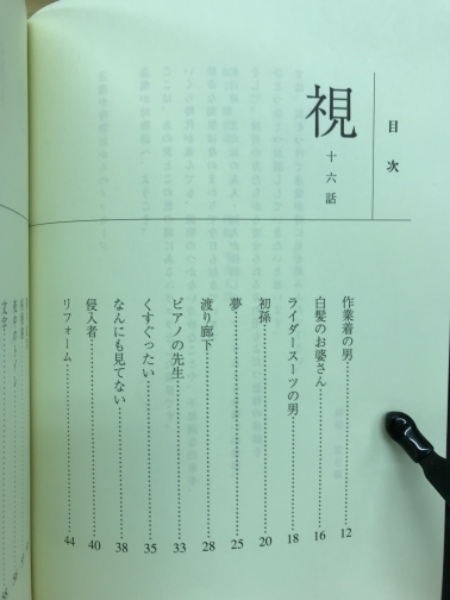 目次
視
十六話
作業着の男 12
白髪のお婆さん 16
ライダースーツの男 18
初孫 20
夢 25
渡り廊下 28
ピアノの先生 33
くすぐったい 35
なんにも見てない 38
侵入者 40
リフォーム 44